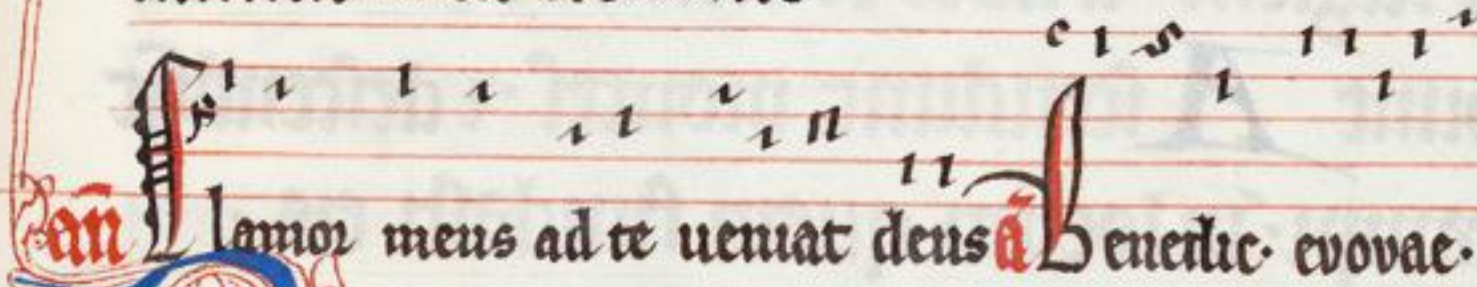 an̄ Clamor meus ad te ueniat deus ā Benedic· evovae·